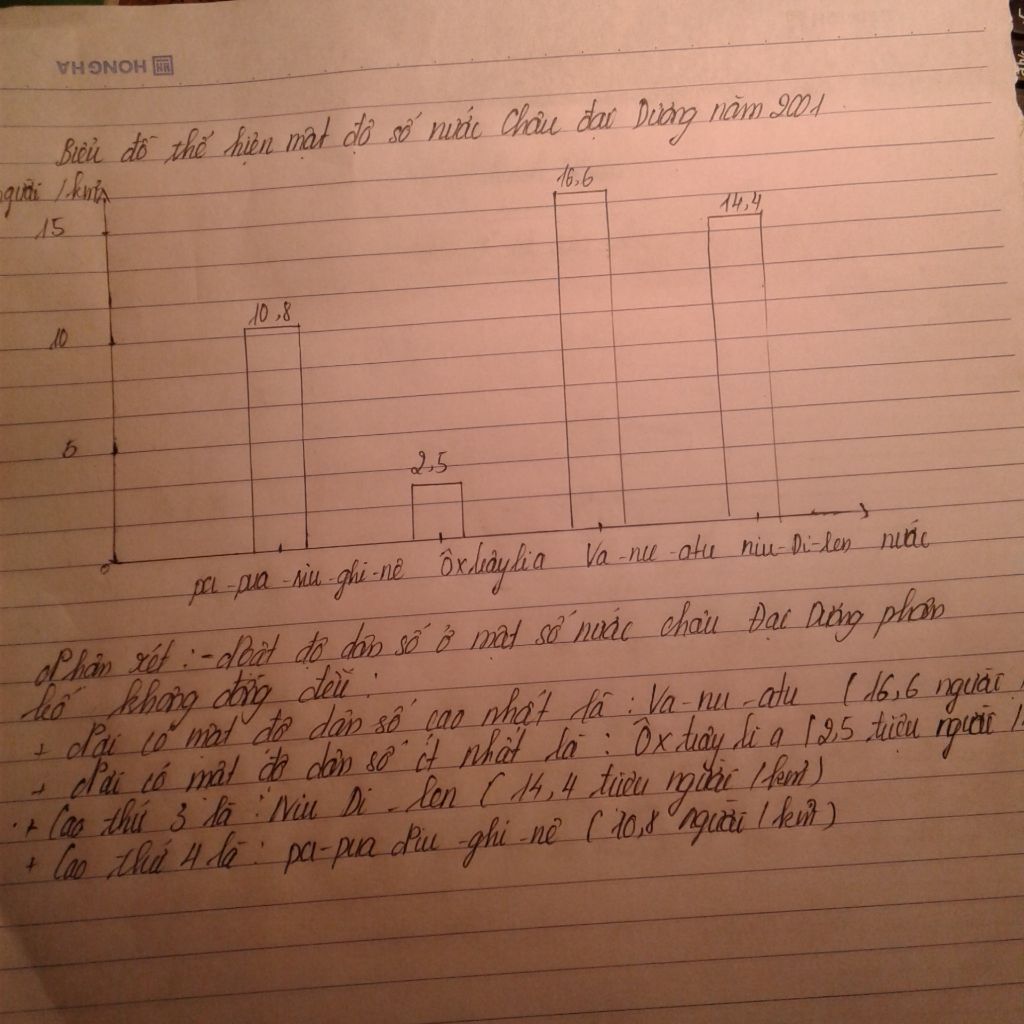 HONG HA
Biểu đồ thể hiện mật độ số nước Châu đại Dương năm 2001
người / km²
16,6
14,4
15
10,8
10
2,5
5
0
pa-pua-niu-ghi-nê Ôxtrâylia Va-nu-atu niu-Di-len nước
Nhận xét : - Mật độ dân số ở một số nước châu Đại Dương phân
bố không đồng đều :
+ Nơi có mật độ dân số cao nhất là : Va-nu-atu ( 16,6 người
+ Nơi có mật độ dân số ít nhất là : Ôxtrâylia ( 2,5 triệu người /
+ Cao thứ 3 là : Niu Di-len ( 14,4 triệu người / km²)
+ Cao thứ 4 là : pa-pua Niu-ghi-nê ( 10,8 người / km²)